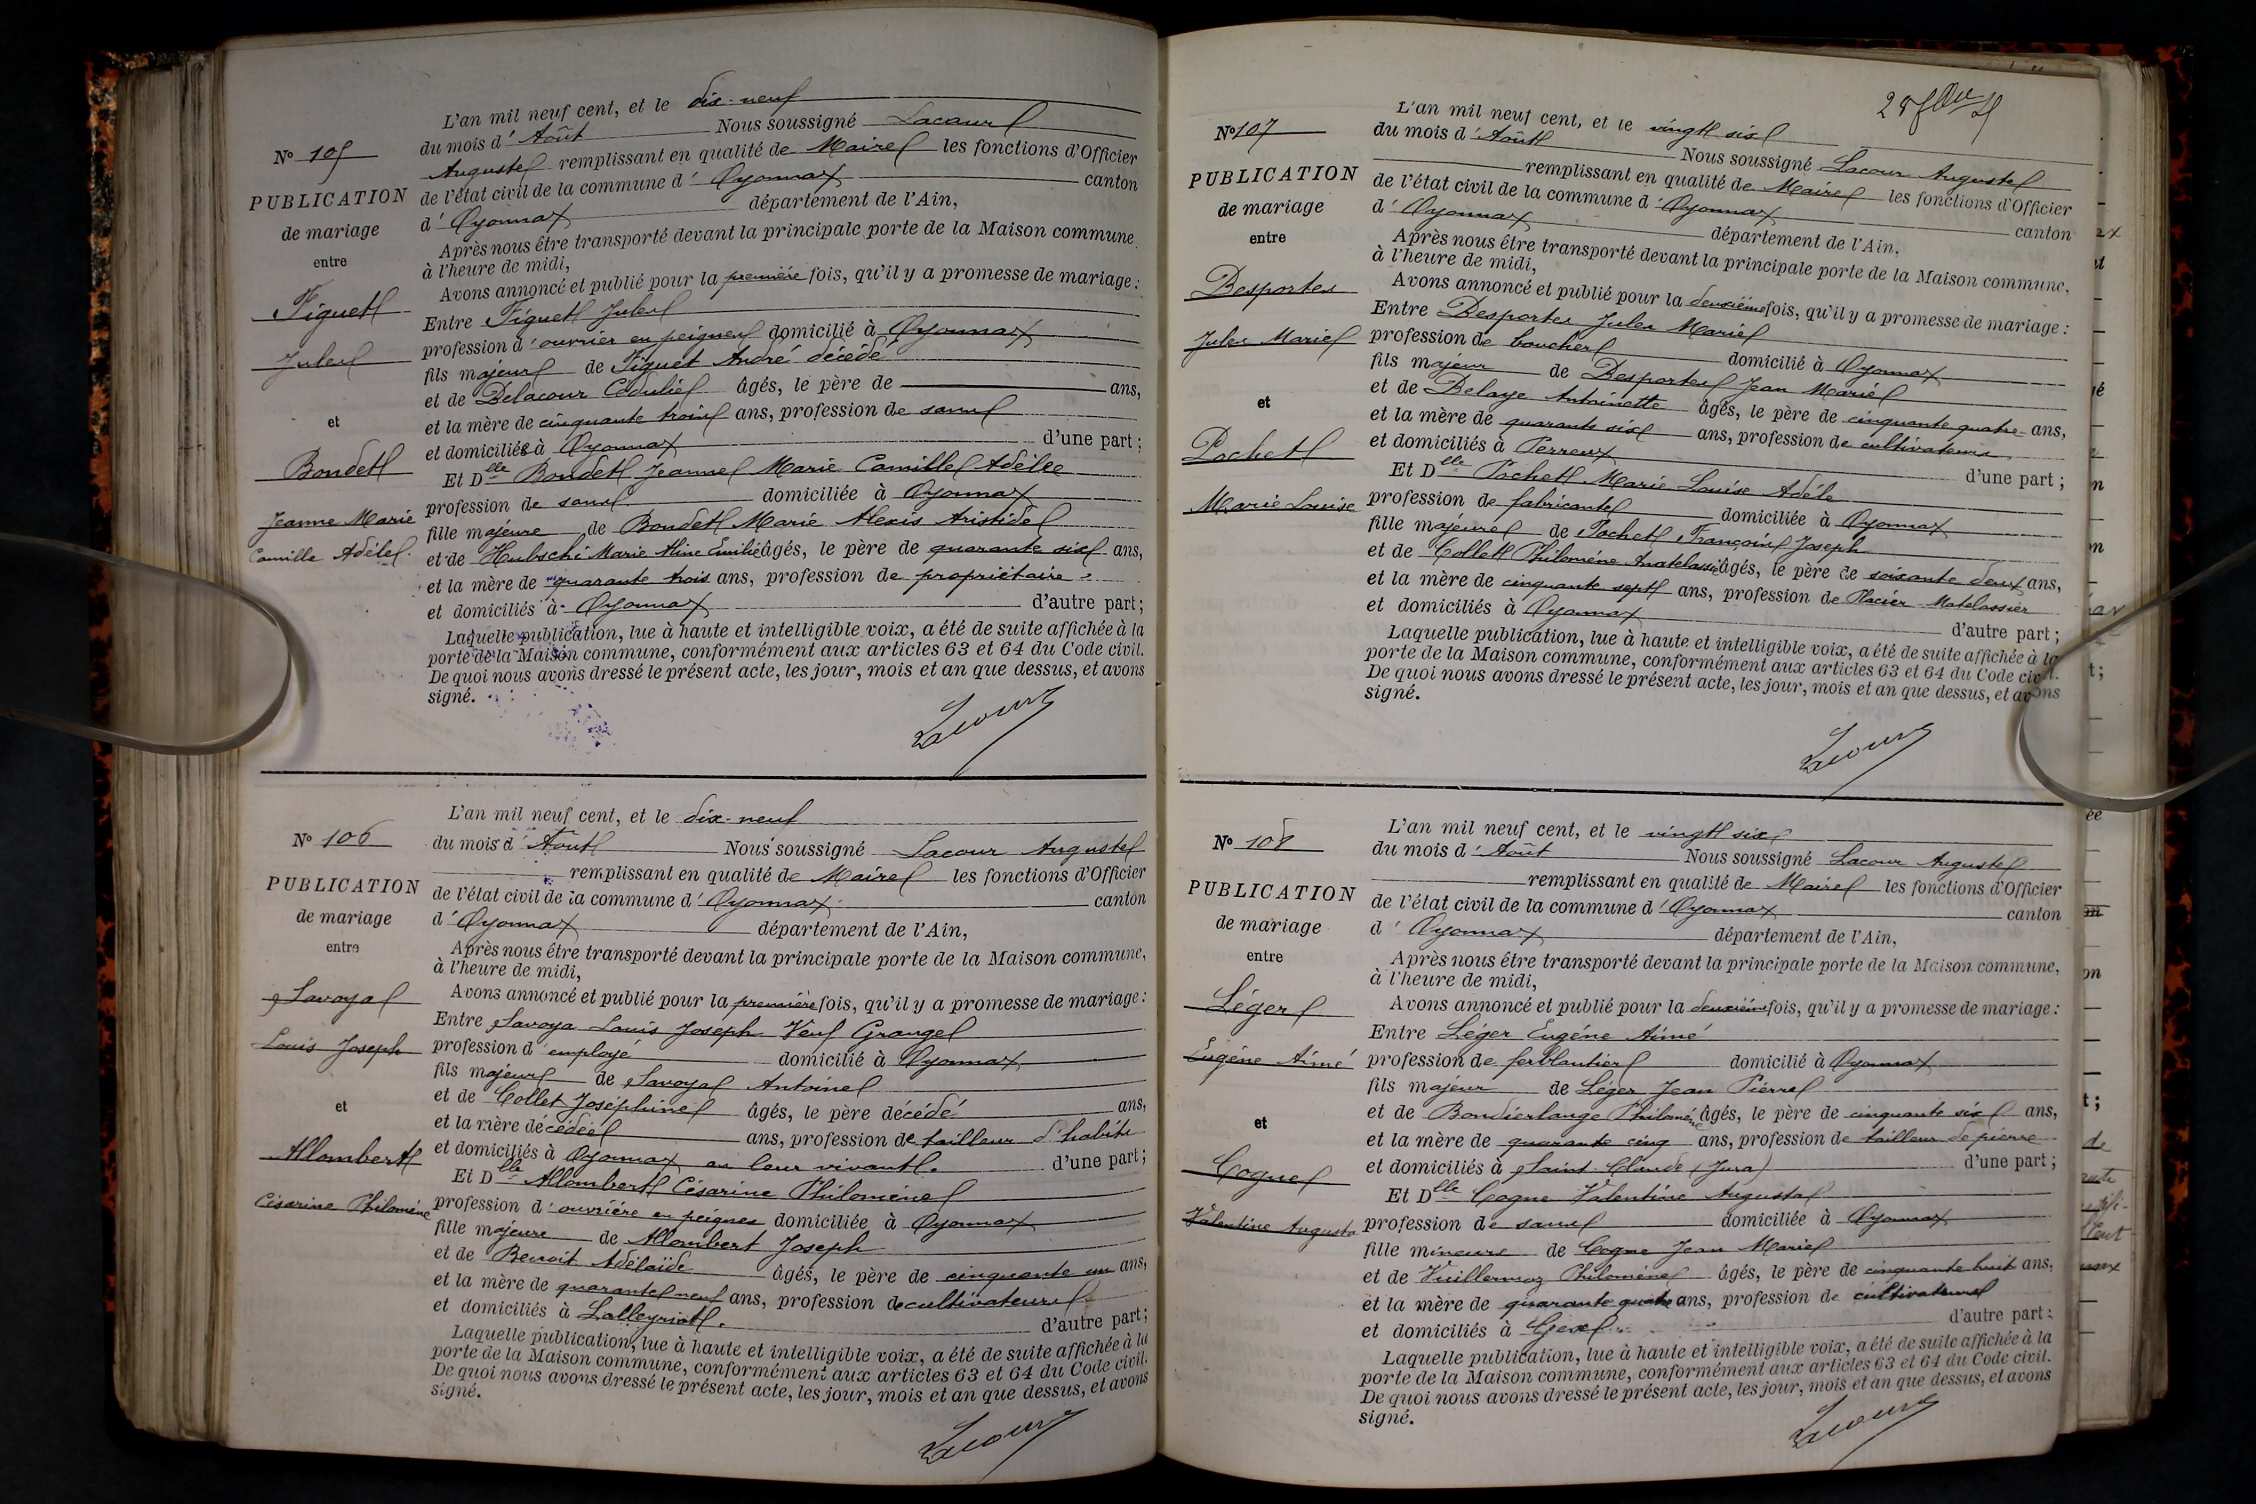 N° 105
PUBLICATION
de mariage
entre
Figuet
Jules
et
Boudet
Jeanne Marie
Camille Adèle
L'an mil neuf cent, et le dix-neuf
du mois d'Août Nous soussigné Lacour
Auguste remplissant en qualité de Maire les fonctions d'Officier
de l'état civil de la commune d'Oyonnax canton
d'Oyonnax département de l'Ain,
Après nous être transporté devant la principale porte de la Maison commune
à l'heure de midi,
Avons annoncé et publié pour la première fois, qu'il y a promesse de mariage :
Entre Figuet Jules
profession d'ouvrier en peignes domicilié à Oyonnax
fils majeur de Figuet André décédé
et de Delacour âgés, le père de ans,
et la mère de cinquante trois ans, profession de sans
et domiciliés à Oyonnax d'une part ;
Et Dlle Boudet Jeanne Marie Camille Adèle
profession de sans domiciliée à Oyonnax
fille majeure de Boudet Marie Alexis Aristide
et de Hubschi Marie Aline Emilie âgés, le père de quarante six ans,
et la mère de quarante trois ans, profession de propriétaire
et domiciliés à Oyonnax d'autre part ;
Laquelle publication, lue à haute et intelligible voix, a été de suite affichée à la
porte de la Maison commune, conformément aux articles 63 et 64 du Code civil.
De quoi nous avons dressé le présent acte, les jour, mois et an que dessus, et avons
signé.
Lacour
N° 106
PUBLICATION
de mariage
entre
Savoya
Louis Joseph
et
Allombert
Césarine Philomène
L'an mil neuf cent, et le dix-neuf
du mois d'Août Nous soussigné Lacour Auguste
remplissant en qualité de Maire les fonctions d'Officier
de l'état civil de la commune d'Oyonnax canton
d'Oyonnax département de l'Ain,
Après nous être transporté devant la principale porte de la Maison commune,
à l'heure de midi,
Avons annoncé et publié pour la première fois, qu'il y a promesse de mariage :
Entre Savoya Louis Joseph Veuf Grange
profession d'employé domicilié à Oyonnax
fils majeur de Savoya Antoine
et de Collet Joséphine âgés, le père décédé ans,
et la mère décédée ans, profession de tailleur d'habits
et domiciliés à Oyonnax en leur vivant. d'une part ;
Et Dlle Allombert Césarine Philomène
profession d'ouvrière en peignes domiciliée à Oyonnax
fille majeure de Allombert Joseph
et de Benoit Adélaïde âgés, le père de cinquante un ans,
et la mère de quarante neuf ans, profession de cultivateurs
et domiciliés à Lalleyriat. d'autre part ;
Laquelle publication, lue à haute et intelligible voix, a été de suite affichée à la
porte de la Maison commune, conformément aux articles 63 et 64 du Code civil.
De quoi nous avons dressé le présent acte, les jour, mois et an que dessus, et avons
signé.
Lacour
N° 107
PUBLICATION
de mariage
entre
Desportes
Jules Marie
et
Pochet
Marie Louise
L'an mil neuf cent, et le vingt six
du mois d'Août Nous soussigné Lacour Auguste
remplissant en qualité de Maire les fonctions d'Officier
de l'état civil de la commune d'Oyonnax canton
d'Oyonnax département de l'Ain,
Après nous être transporté devant la principale porte de la Maison commune,
à l'heure de midi,
Avons annoncé et publié pour la deuxième fois, qu'il y a promesse de mariage :
Entre Desportes Jules Marie
profession de boucher domicilié à Oyonnax
fils majeur de Desportes Jean Marie
et de Delaye Antoinette âgés, le père de cinquante quatre ans,
et la mère de quarante six ans, profession de cultivateurs
et domiciliés à Perreux d'une part ;
Et Dlle Pochet Marie Louise Adèle
profession de fabricante domiciliée à Oyonnax
fille majeure de Pochet François Joseph
et de Collet Philomène âgés, le père de soixante deux ans,
et la mère de cinquante sept ans, profession de Placier Matelassier
et domiciliés à Oyonnax d'autre part ;
Laquelle publication, lue à haute et intelligible voix, a été de suite affichée à la
porte de la Maison commune, conformément aux articles 63 et 64 du Code civil.
De quoi nous avons dressé le présent acte, les jour, mois et an que dessus, et avons
signé.
Lacour
N° 108
PUBLICATION
de mariage
entre
Léger
Eugène Aimé
et
Cogne
Valentine Augusta
L'an mil neuf cent, et le vingt six
du mois d'Août Nous soussigné Lacour Auguste
remplissant en qualité de Maire les fonctions d'Officier
de l'état civil de la commune d'Oyonnax canton
d'Oyonnax département de l'Ain,
Après nous être transporté devant la principale porte de la Maison commune,
à l'heure de midi,
Avons annoncé et publié pour la deuxième fois, qu'il y a promesse de mariage :
Entre Léger Eugène Aimé
profession de ferblantier domicilié à Oyonnax
fils majeur de Léger Jean Pierre
et de Boudierlange Philomène âgés, le père de cinquante six ans,
et la mère de quarante cinq ans, profession de tailleur de pierre
et domiciliés à Saint Claude (Jura) d'une part ;
Et Dlle Cogne Valentine Augusta
profession de sans domiciliée à Oyonnax
fille mineure de Cogne Jean Marie
et de Vuillermoz Philomène âgés, le père de cinquante huit ans,
et la mère de quarante quatre ans, profession de cultivateurs
et domiciliés à Gex d'autre part ;
Laquelle publication, lue à haute et intelligible voix, a été de suite affichée à la
porte de la Maison commune, conformément aux articles 63 et 64 du Code civil.
De quoi nous avons dressé le présent acte, les jour, mois et an que dessus, et avons
signé.
Lacour